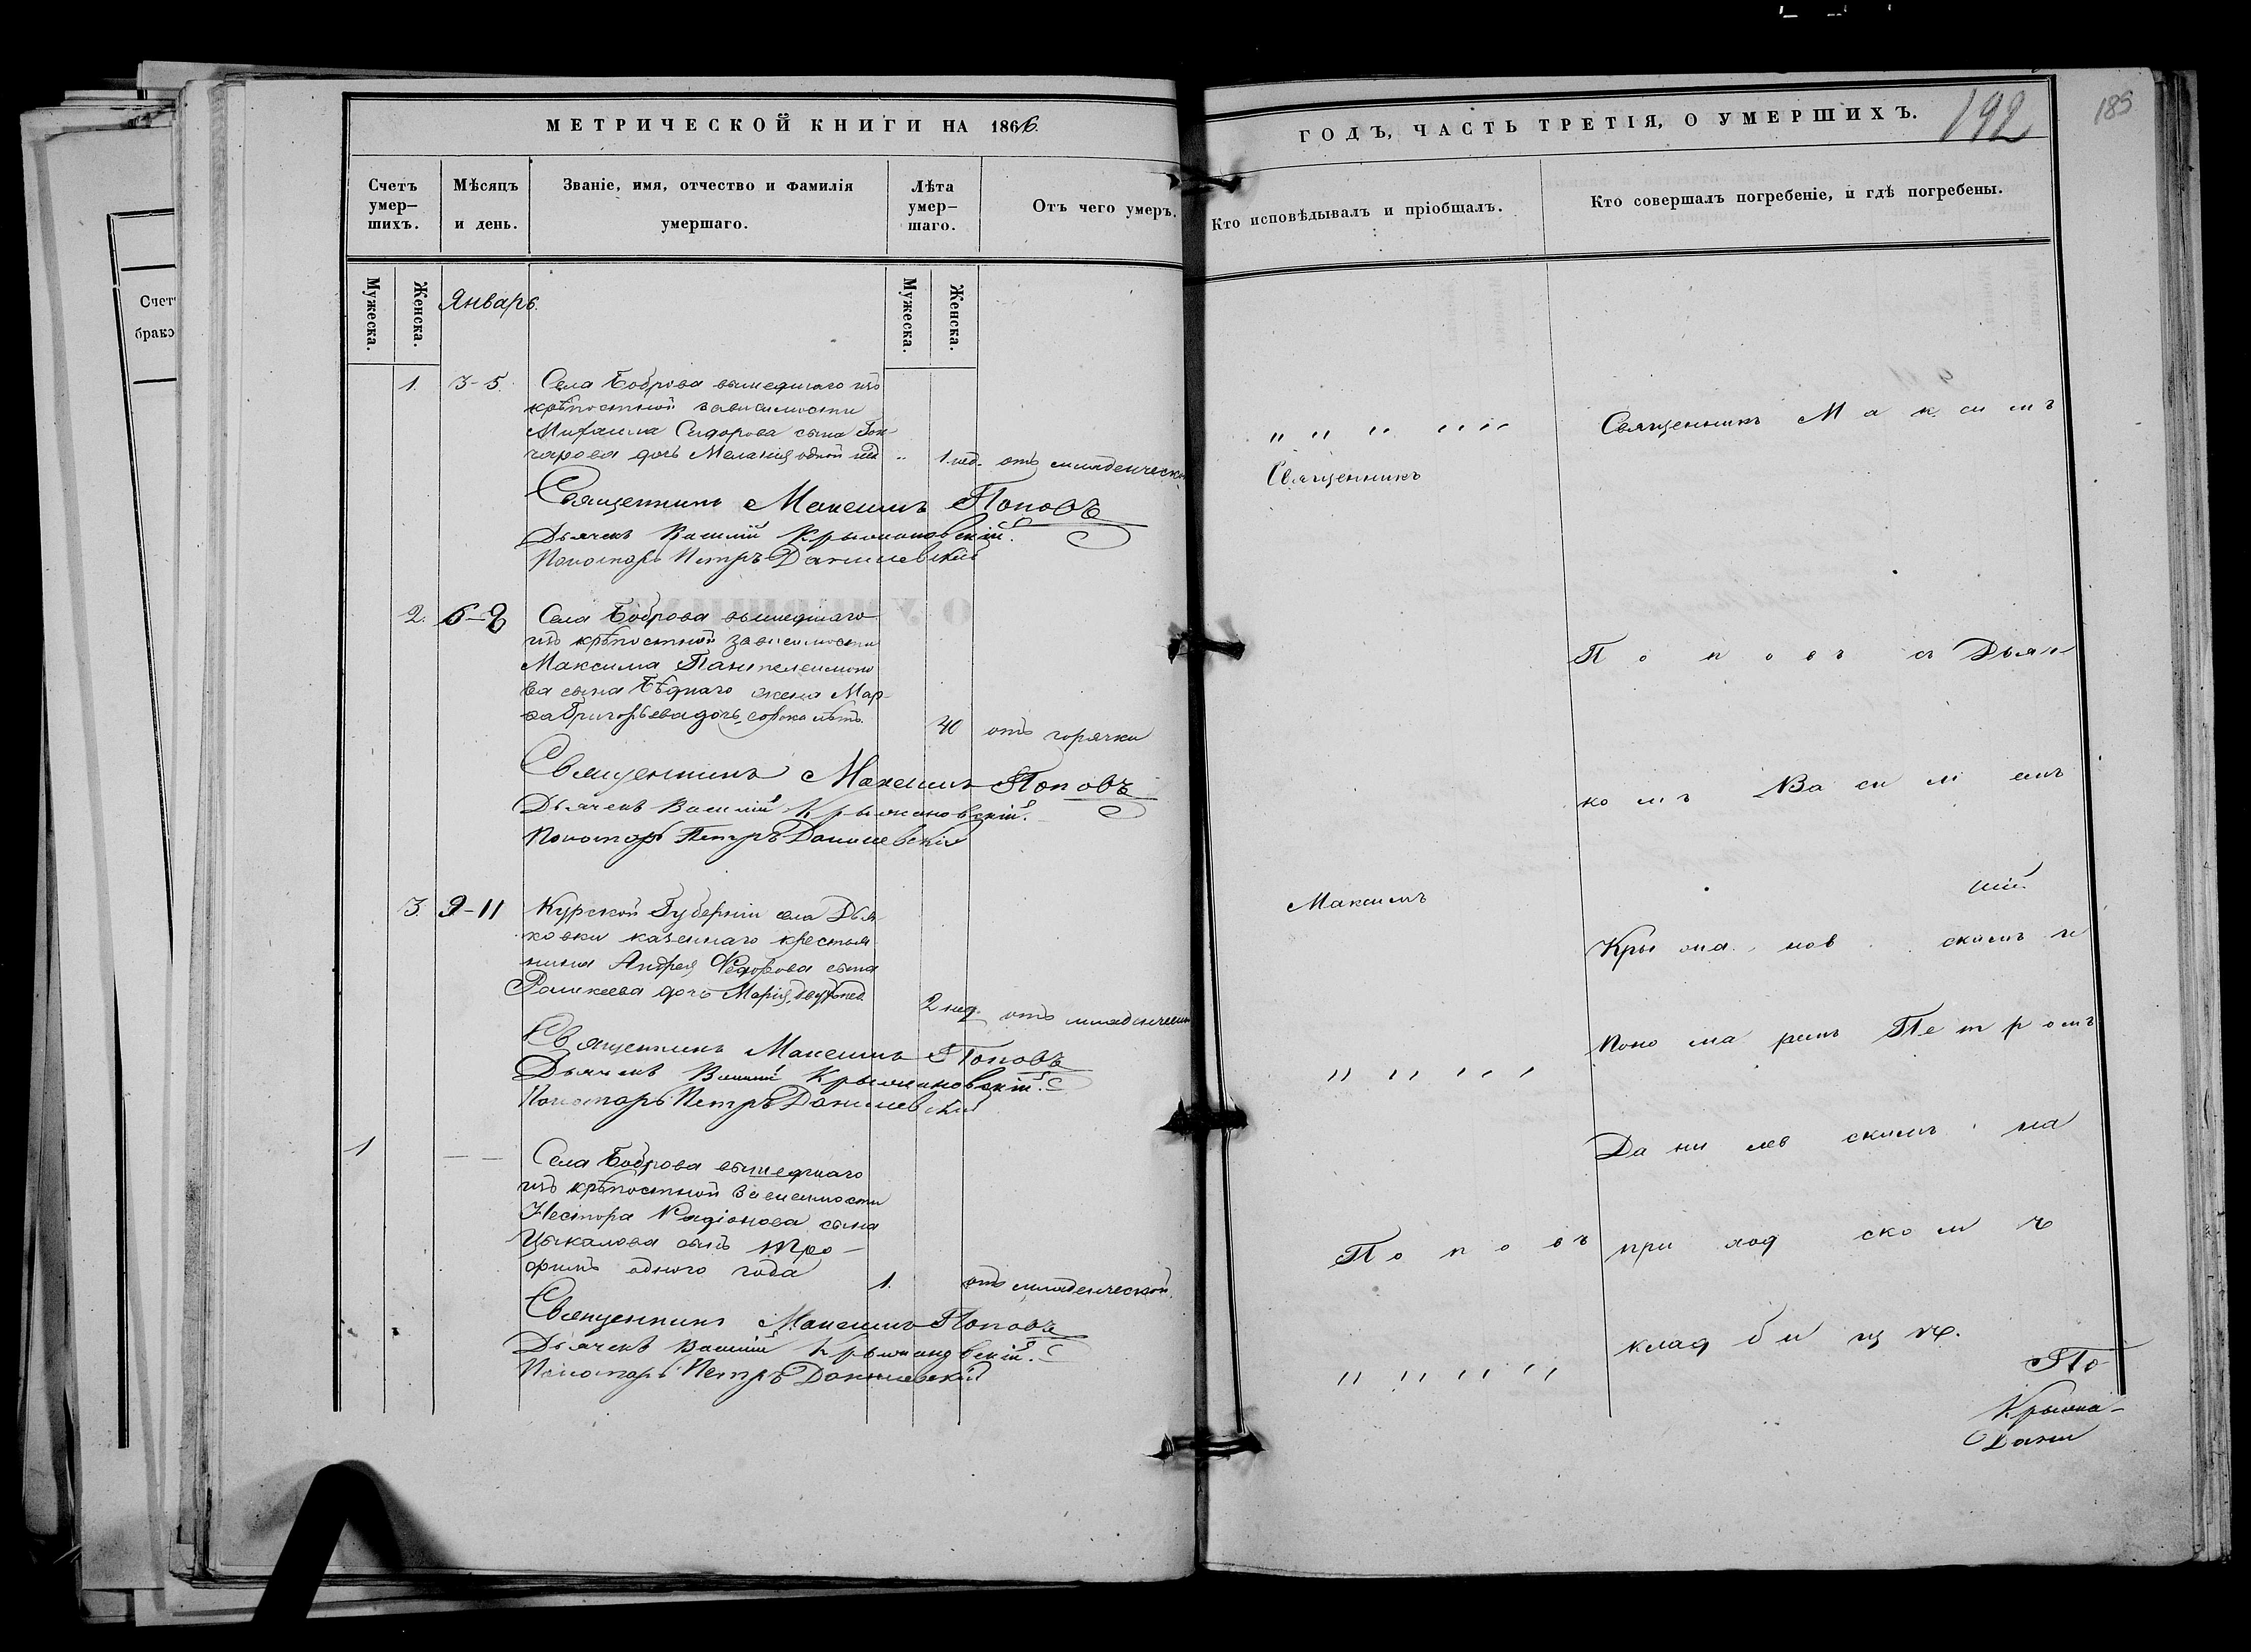 МЕТРИЧЕСКОЙ КНИГИ НА 1866.
Счетъ умер-шихъ.
Мѣсяцъ и день.
Званіе, имя, отчество и фамилія умершаго.
Лѣта умер-шаго.
Отъ чего умеръ.
Мужеска.
Женска.
Январь.
Мужеска.
Женска.
1. 3-5. Села Боброва вышедшаго изъ
крѣпостной зависимости
Михаила Сидорова сына Гон-
чарова дочь Меланія одной нед. „ 1 нед. отъ младенческой
Священникъ Максимъ Поповъ
Дьячекъ Василій Крыжановскій.
Пономарь Петръ Данилевскій
2. 6-8 Села Боброва вышедшаго
изъ крѣпостной зависимости
Максима Пантелеимоно
ва сына Бѣднаго жена Мар-
ѳа Григорьева дочь, сорока лѣтъ. 40 отъ горячки
Священникъ Максимъ Поповъ
Дьячекъ Василій Крыжановскій.
Пономарь Петръ Данилевскій
3. 9-11 Курской Губерніи села Дья-
ковки казеннаго крестья
нина Андрея Ѳедорова сына
дочь Марія, двухъ нед. 2 нед. отъ младенческой
Священникъ Максимъ Поповъ
Дьячекъ Василій Крыжановскій.
Пономарь Петръ Данилевскій
1 — — Села Боброва вышедшаго
изъ крѣпостной зависимости
Нестора Радіонова сына
Цыкалова сынъ Тро-
фимъ одного года 1. отъ младенческой.
Священникъ Максимъ Поповъ
Дьячекъ Василій Крыжановскій.
Пономарь Петръ Данилевскій
ГОДЪ, ЧАСТЬ ТРЕТІЯ, О УМЕРШИХЪ. 192
185
Кто исповѣдывалъ и пріобщалъ.
Кто совершалъ погребеніе, и гдѣ погребены.
„ „ „ „ „
Священникъ
Максимъ
„ „ „ „
Поповъ
„ „ „ „
Священникъ Максимъ
Поповъ съ Дьяч
комъ Василіемъ
Крыжановскимъ и
Пономаремъ Петромъ
Данилевскимъ на
приходскомъ
кладбищѣ.
По-
Крыжа-
Дани
Счет
брако